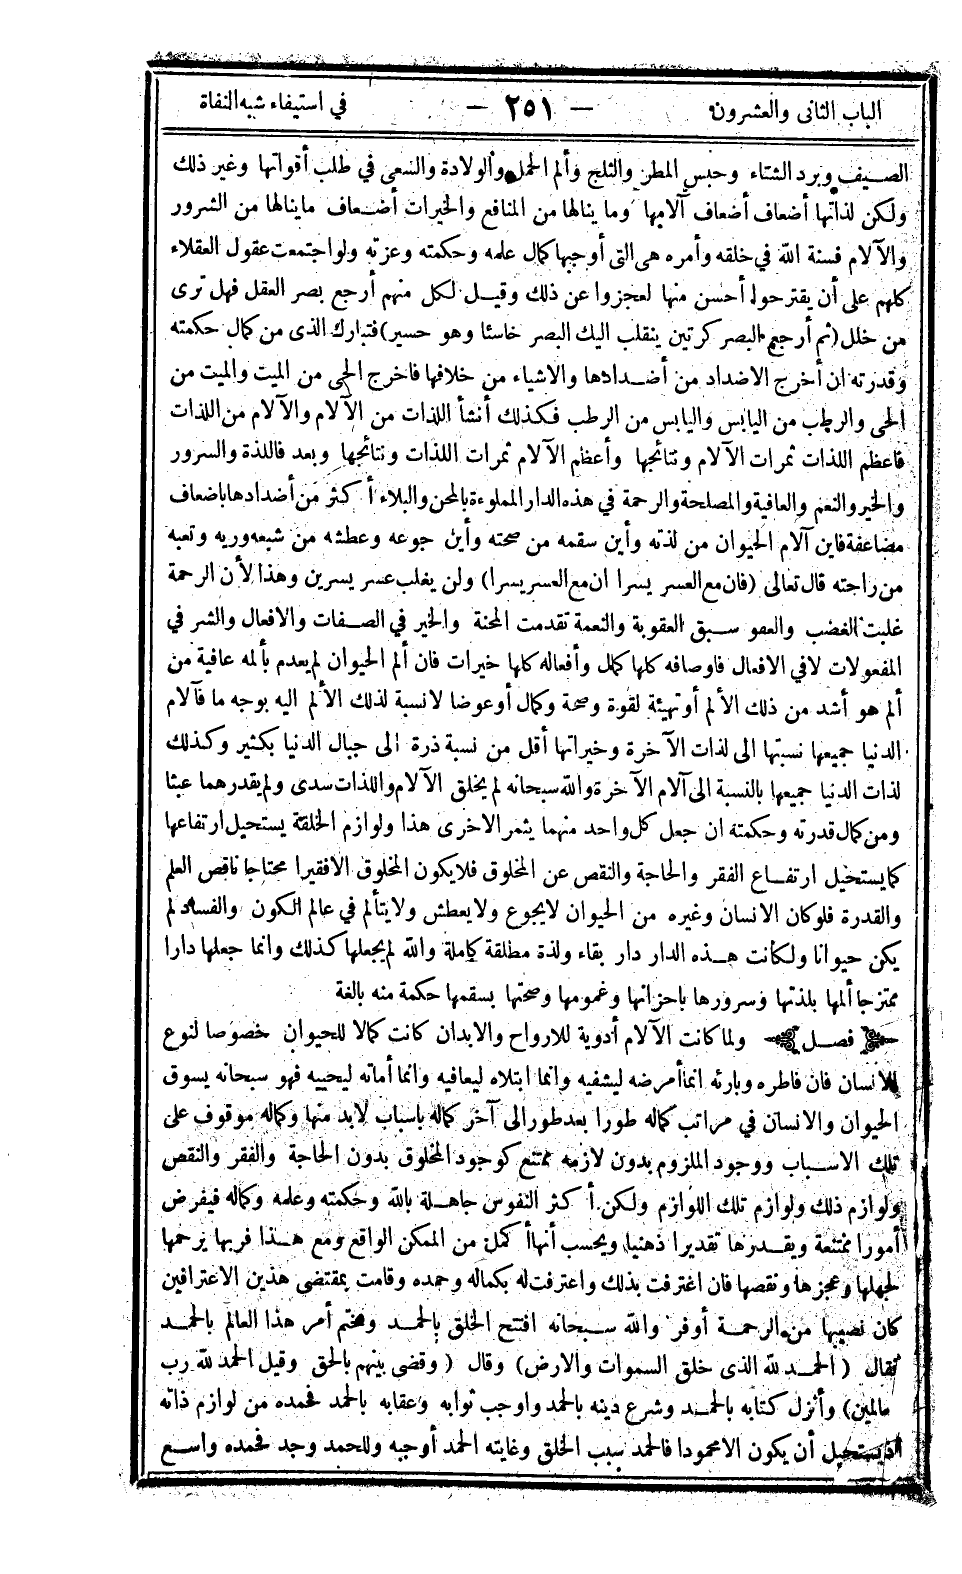 الباب الثانى والعشرون — ٢٥١ — في استيفاء شبه النفاة
الصيف وبرد الشتاء وحبس المطر والثلج وألم الحمل والولادة والسعى في طلب أقواتها وغير ذلك
ولكن لذاتها أضعاف أضعاف آلامها وما ينالها من المنافع والخيرات أضعاف ما ينالها من الشرور
والآلام فسنة الله في خلقه وأمره هى التى أوجبها كمال علمه وحكمته وعزته ولو اجتمعت عقول العقلاء
كلهم على أن يقترحوا أحسن منها لعجزوا عن ذلك وقيل لكل منهم أرجع بصر العقل فهل ترى
من خلل (ثم أرجع البصر كرتين ينقلب اليك البصر خاسئا وهو حسير) فتبارك الذى من كمال حكمته
وقدرته ان أخرج الاضداد من أضدادها والاشياء من خلافها فاخرج الحى من الميت والميت من
الحى والرطب من اليابس واليابس من الرطب فكذلك أنشأ اللذات من الآلام والآلام من اللذات
فاعظم اللذات ثمرات الآلام ونتائجها وأعظم الآلام ثمرات اللذات ونتائجها وبعد فاللذة والسرور
والخير والنعم والعافية والمصلحة والرحمة في هذه الدار المملوءة بالمحن والبلاء أكثر من أضدادها باضعاف
مضاعفة فاين آلام الحيوان من لذته وأين سقمه من صحته وأين جوعه وعطشه من شبعه وريه وتعبه
من راحته قال تعالى (فان مع العسر يسرا ان مع العسر يسرا) ولن يغلب عسر يسرين وهذا لأن الرحمة
غلبت الغضب والعفو سبق العقوبة والنعمة تقدمت المحنة والخير في الصفات والافعال والشر في
المفعولات لا في الافعال فاوصافه كلها كمال وأفعاله كلها خيرات فان ألم الحيوان لم يعدم بألمه عافية من
ألم هو أشد من ذلك الألم أو تهيئة لقوة وصحة وكمال أو عوضا لا نسبة لذلك الألم اليه بوجه ما فآلام
الدنيا جميعها نسبتها الى لذات الآخرة وخيراتها أقل من نسبة ذرة الى جبال الدنيا بكثير وكذلك
لذات الدنيا جميعها بالنسبة الى آلام الآخرة والله سبحانه لم يخلق الآلام واللذات سدى ولم يقدرهما عبثا
ومن كمال قدرته وحكمته ان جعل كل واحد منهما يثمر الاخرى هذا ولوازم الخلقة يستحيل ارتفاعها
كما يستحيل ارتفاع الفقر والحاجة والنقص عن المخلوق فلا يكون المخلوق الا فقيرا محتاجا ناقص العلم
والقدرة فلو كان الانسان وغيره من الحيوان لا يجوع ولا يعطش ولا يتألم في عالم الكون والفساد لم
يكن حيوانا ولكانت هذه الدار دار بقاء ولذة مطلقة كاملة والله لم يجعلها كذلك وانما جعلها دارا
ممتزجا ألمها بلذتها وسرورها باحزانها وغمومها وصحتها بسقمها حكمة منه بالغة
فصل ولما كانت الآلام أدوية للارواح والابدان كانت كمالا للحيوان خصوصا لنوع
الانسان فان فاطره وبارئه انما أمرضه ليشفيه وانما ابتلاه ليعافيه وانما أماته ليحييه فهو سبحانه يسوق
الحيوان والانسان في مراتب كماله طورا بعد طور الى آخر كماله باسباب لابد منها وكماله موقوف على
تلك الاسباب ووجود الملزوم بدون لازمه ممتنع كوجود المخلوق بدون الحاجة والفقر والنقص
ولوازم ذلك ولوازم تلك اللوازم ولكن أكثر النفوس جاهلة بالله وحكمته وعلمه وكماله فيفرض
أمورا ممتنعة ويقدرها تقديرا ذهنيا ويحسب أنها أكمل من الممكن الواقع ومع هذا فربها يرحمها
لجهلها وعجزها ونقصها فان اعترفت بذلك واعترفت له بكماله وحمده وقامت بمقتضى هذين الاعترافين
كان نصيبها من الرحمة أوفر والله سبحانه افتتح الخلق بالحمد وختم أمر هذا العالم بالحمد
فقال (الحمد لله الذى خلق السموات والارض) وقال (وقضى بينهم بالحق وقيل الحمد لله رب
العالمين) وأنزل كتابه بالحمد وشرع دينه بالحمد واوجب ثوابه وعقابه بالحمد فحمده من لوازم ذاته
اذ يستحيل أن يكون الا محمودا فالحمد سبب الخلق وغايته الحمد أوجبه وللحمد وجد فحمده واسع